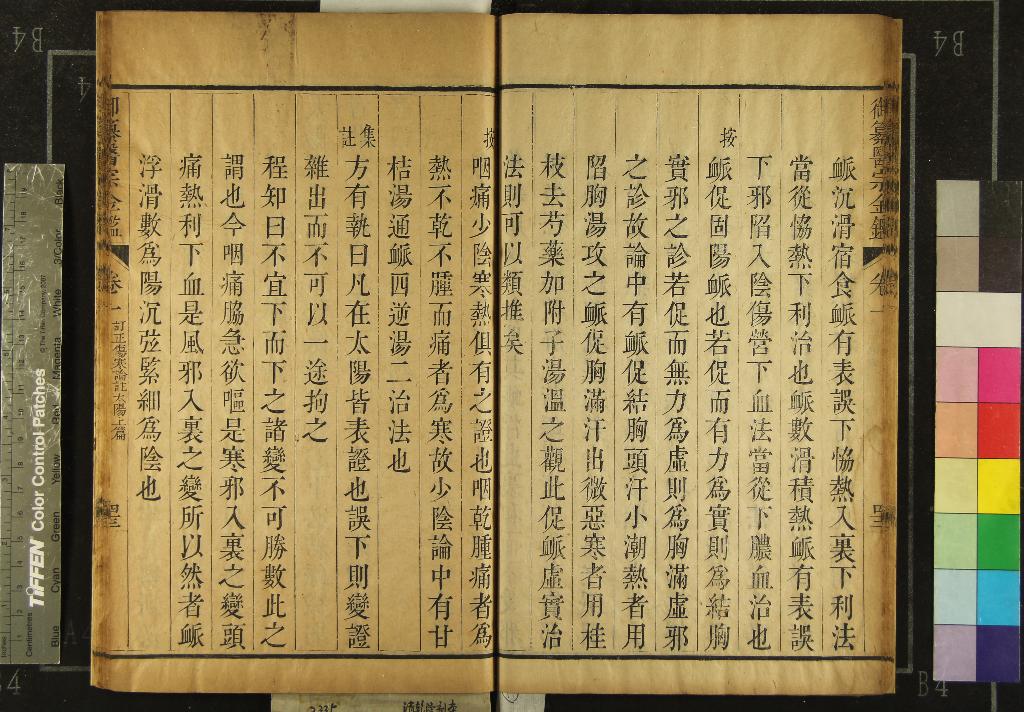 御纂醫宗金鑑 卷一
脈沉滑宿食脈有表誤下恊熱入裏下利法
當從恊熱下利治也脈數滑積熱脈有表誤
下邪陷入陰傷營下血法當從下膿血治也
按
脈促固陽脈也若促而有力為實則為結胸
實邪之診若促而無力為虛則為胸滿虛邪
之診故論中有脈促結胸頭汗小潮熱者用
陷胸湯攻之脈促胸滿汗出微惡寒者用桂
枝去芍藥加附子湯溫之觀此促脈虛實治
法則可以類推矣
按
咽痛少陰寒熱俱有之證也咽乾腫痛者為
熱不乾不腫而痛者為寒故少陰論中有甘
桔湯通脈四逆湯二治法也
集註
方有執曰凡在太陽皆表證也誤下則變證
雜出而不可以一途拘之
程知曰不宜下而下之諸變不可勝數此之
謂也今咽痛脇急欲嘔是寒邪入裏之變頭
痛熱利下血是風邪入裏之變所以然者脈
浮滑數為陽沉弦緊細為陰也
御纂醫宗金鑑 卷一 訂正傷寒論註太陽上篇 四三
TIFFEN Color Control Patches
© The Tiffen Company, 2007
Centimetres
Inches
Blue
Cyan
Green
Yellow
Red
Magenta
White
3/Color
Black
B4
B4
B4
A4